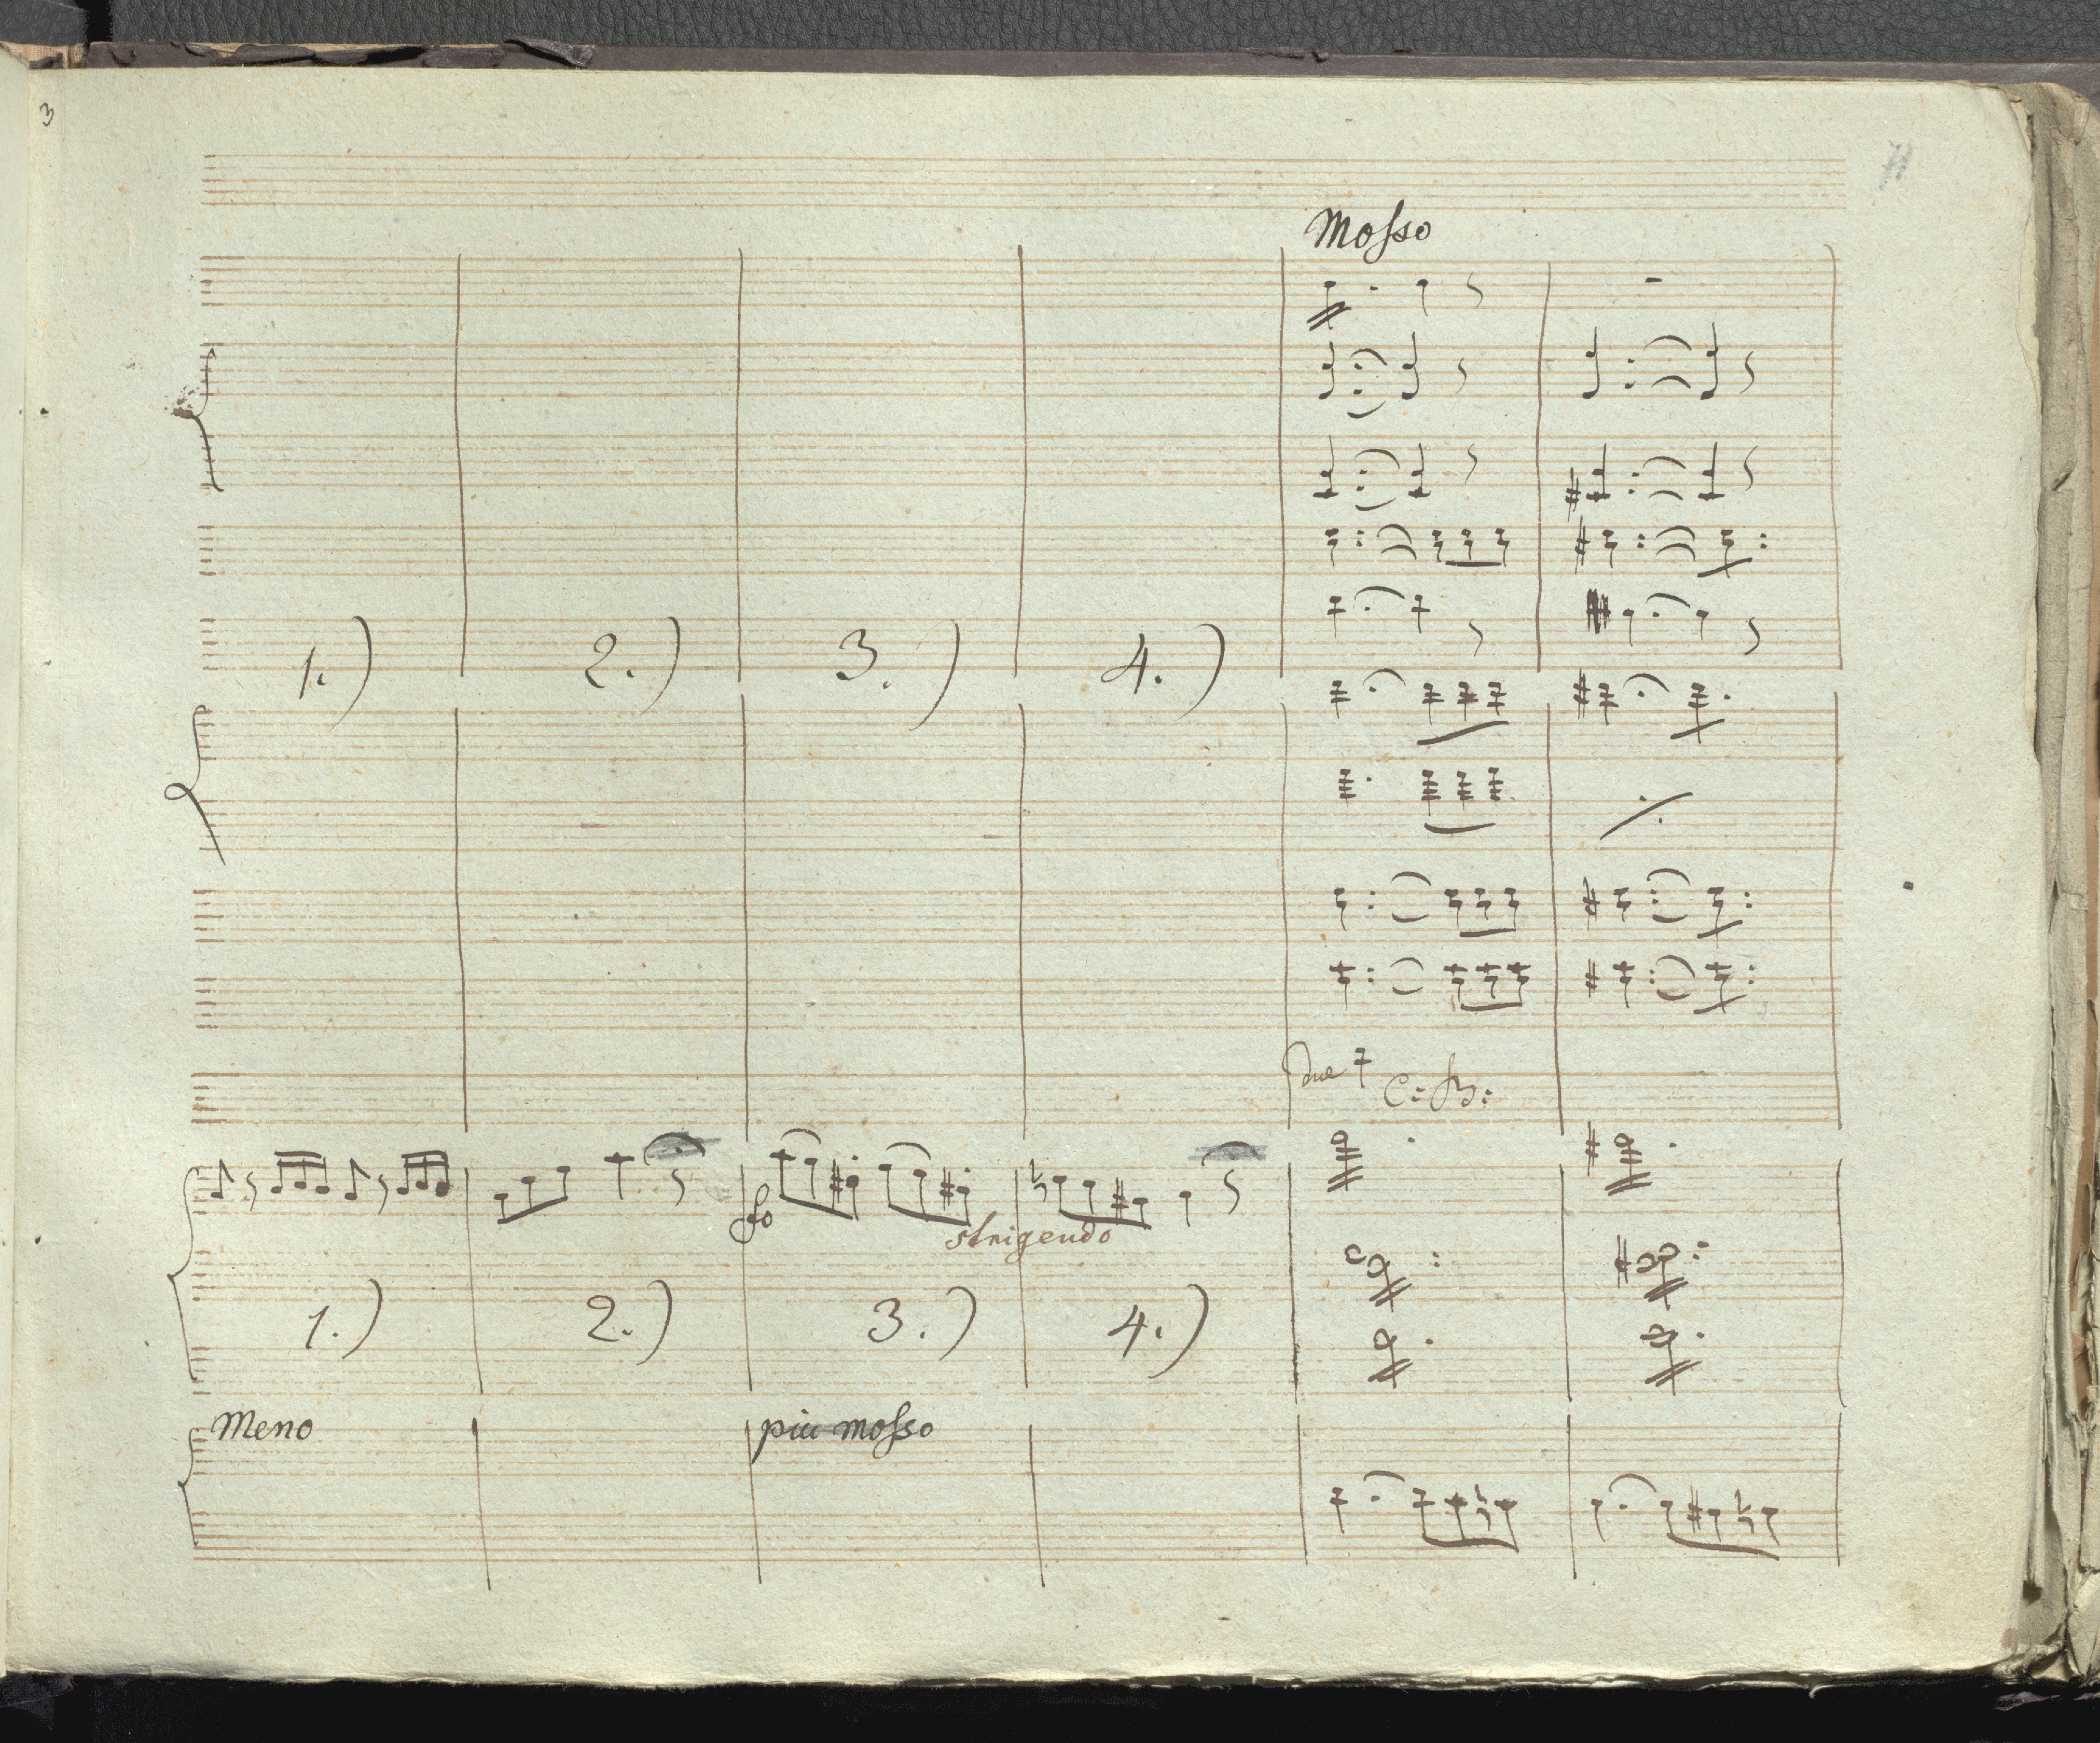 3
11
Mosso
1.) 2.) 3.) 4.)
Due C: B:
fo
strigendo
1.) 2.) 3.) 4.)
Meno più mosso